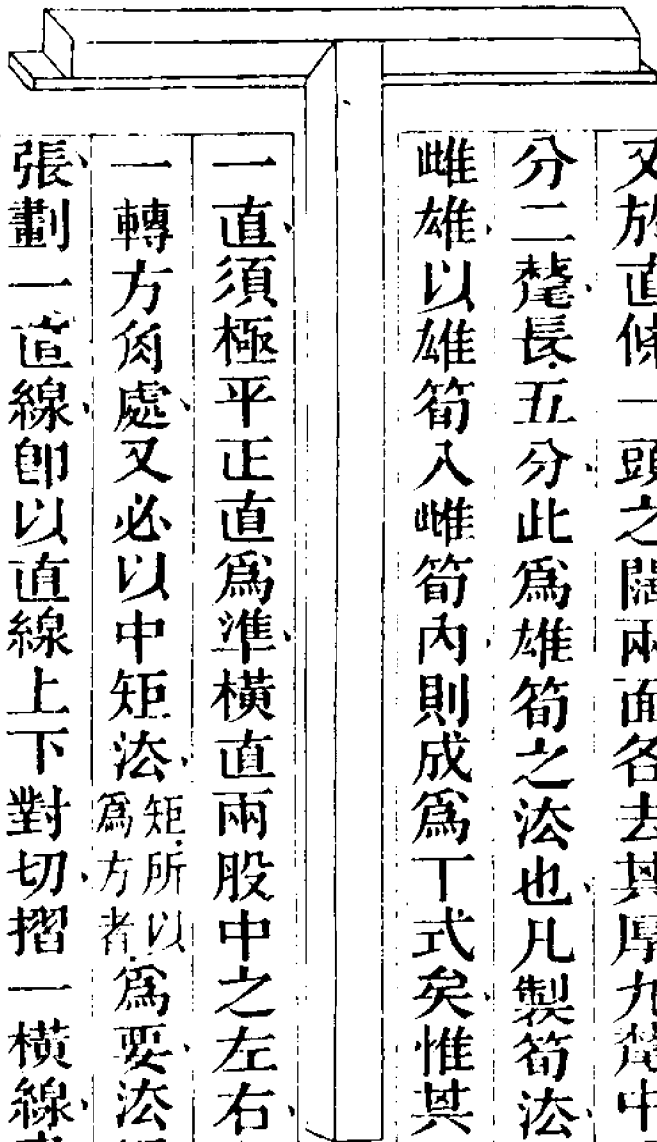 又於直條一頭之闊兩面各去其厚九氂中
分二氂長五分此爲雄筍之法也凡製筍法
雌雄以雄筍入雌筍內則成爲丅式矣惟其
一直須極平正直爲準橫直兩股中之左右
一轉方角處又必以中矩法矩所以爲方者爲要法
張劃一直線卽以直線上下對切摺一橫線